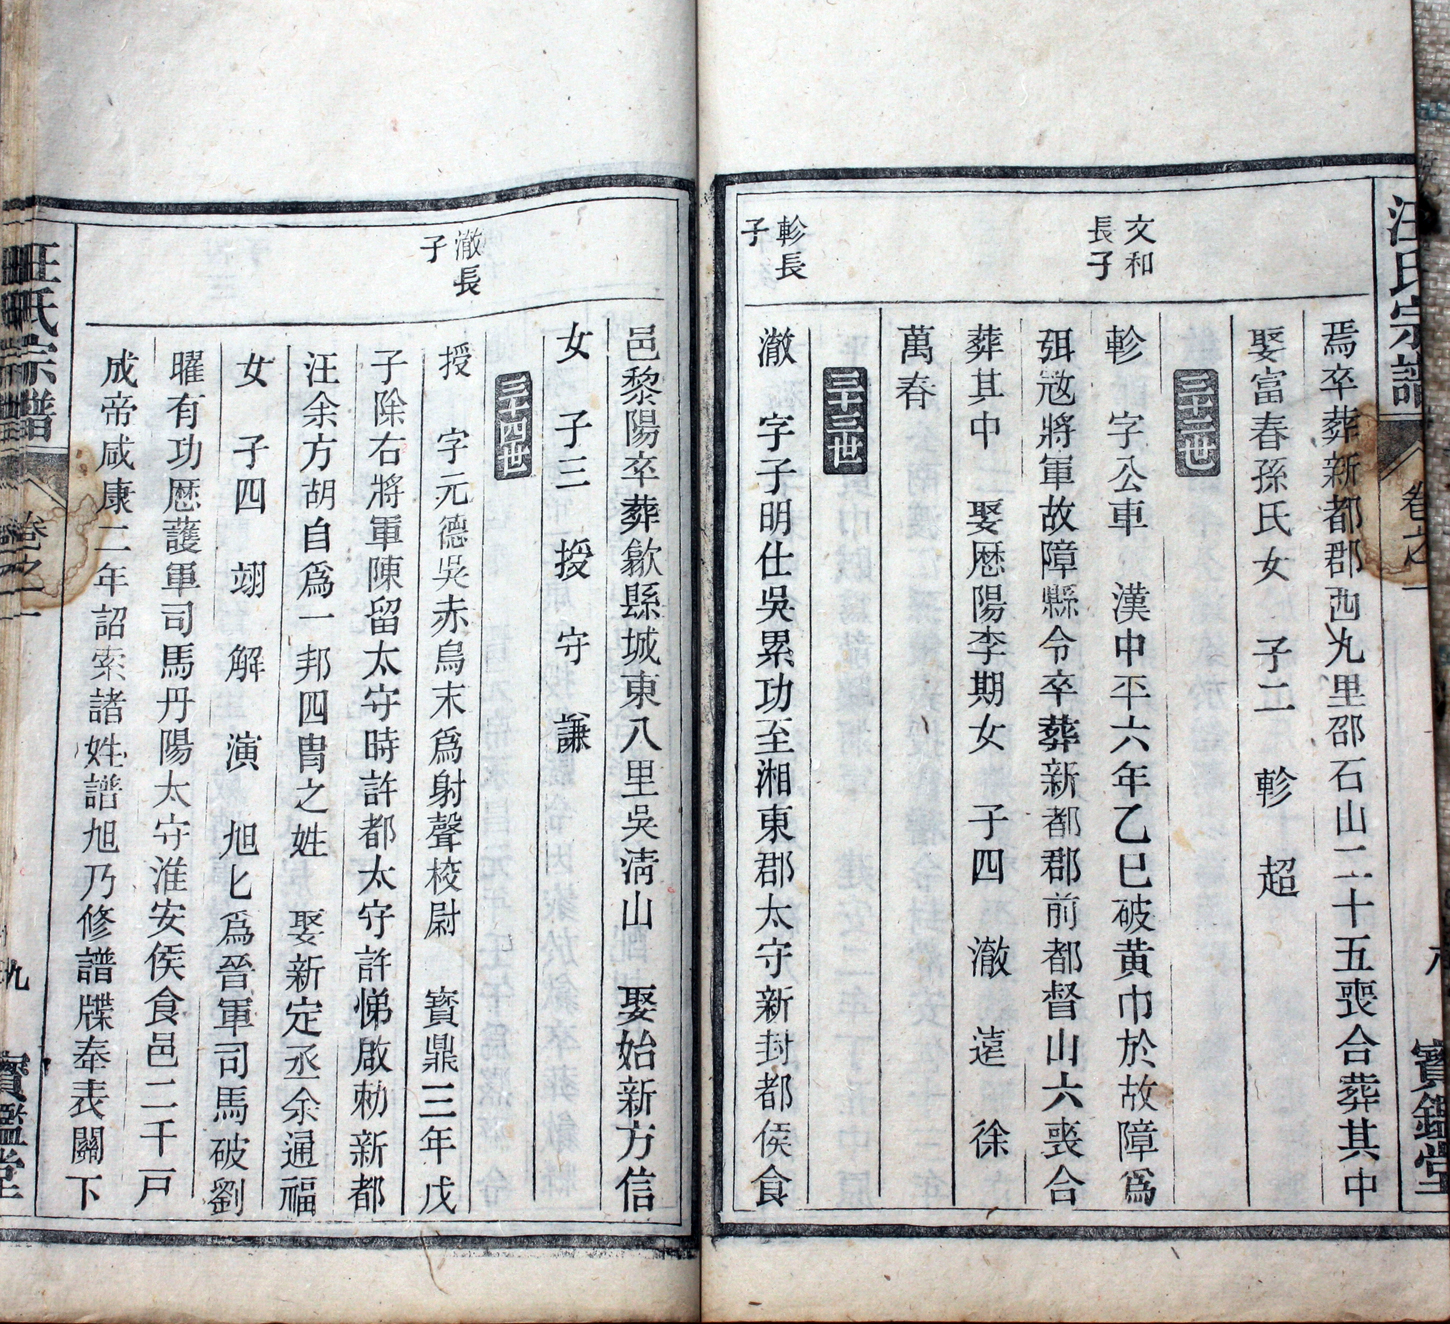 汪氏宗譜 卷之一 寶鑑堂
焉卒葬新都郡西九里邵石山二十五喪合葬其中
娶富春孫氏女 子二 軫 超
三十二世
文和長子
軫 字公車 漢中平六年乙巳破黄巾於故障爲
弭㓂將軍故障縣令卒葬新都郡前都督山六喪合
葬其中 娶歷陽李期女 子四 澈 逵 徐
萬春
三十三世
軫長子
澈 字子明仕吳累功至湘東郡太守新封都侯食
邑黎陽卒葬歙縣城東八里吳淸山 娶始新方信
女 子三 授 守 謙
三十四世
澈長子
授 字元德吳赤烏末爲射聲校尉 寳鼎三年戊
子除右將軍陳留太守時許都太守許悌啟勑新都
汪余方胡自爲一邦四胄之姓 娶新定丞余通福
女 子四 翊 解 演 旭匕爲晉軍司馬破劉
曜有功歷護軍司馬丹陽太守淮安侯食邑二千戸
成帝咸康二年詔索諸姓譜旭乃修譜牒奉表闕下
汪氏宗譜 卷之一 九 寶鑑堂